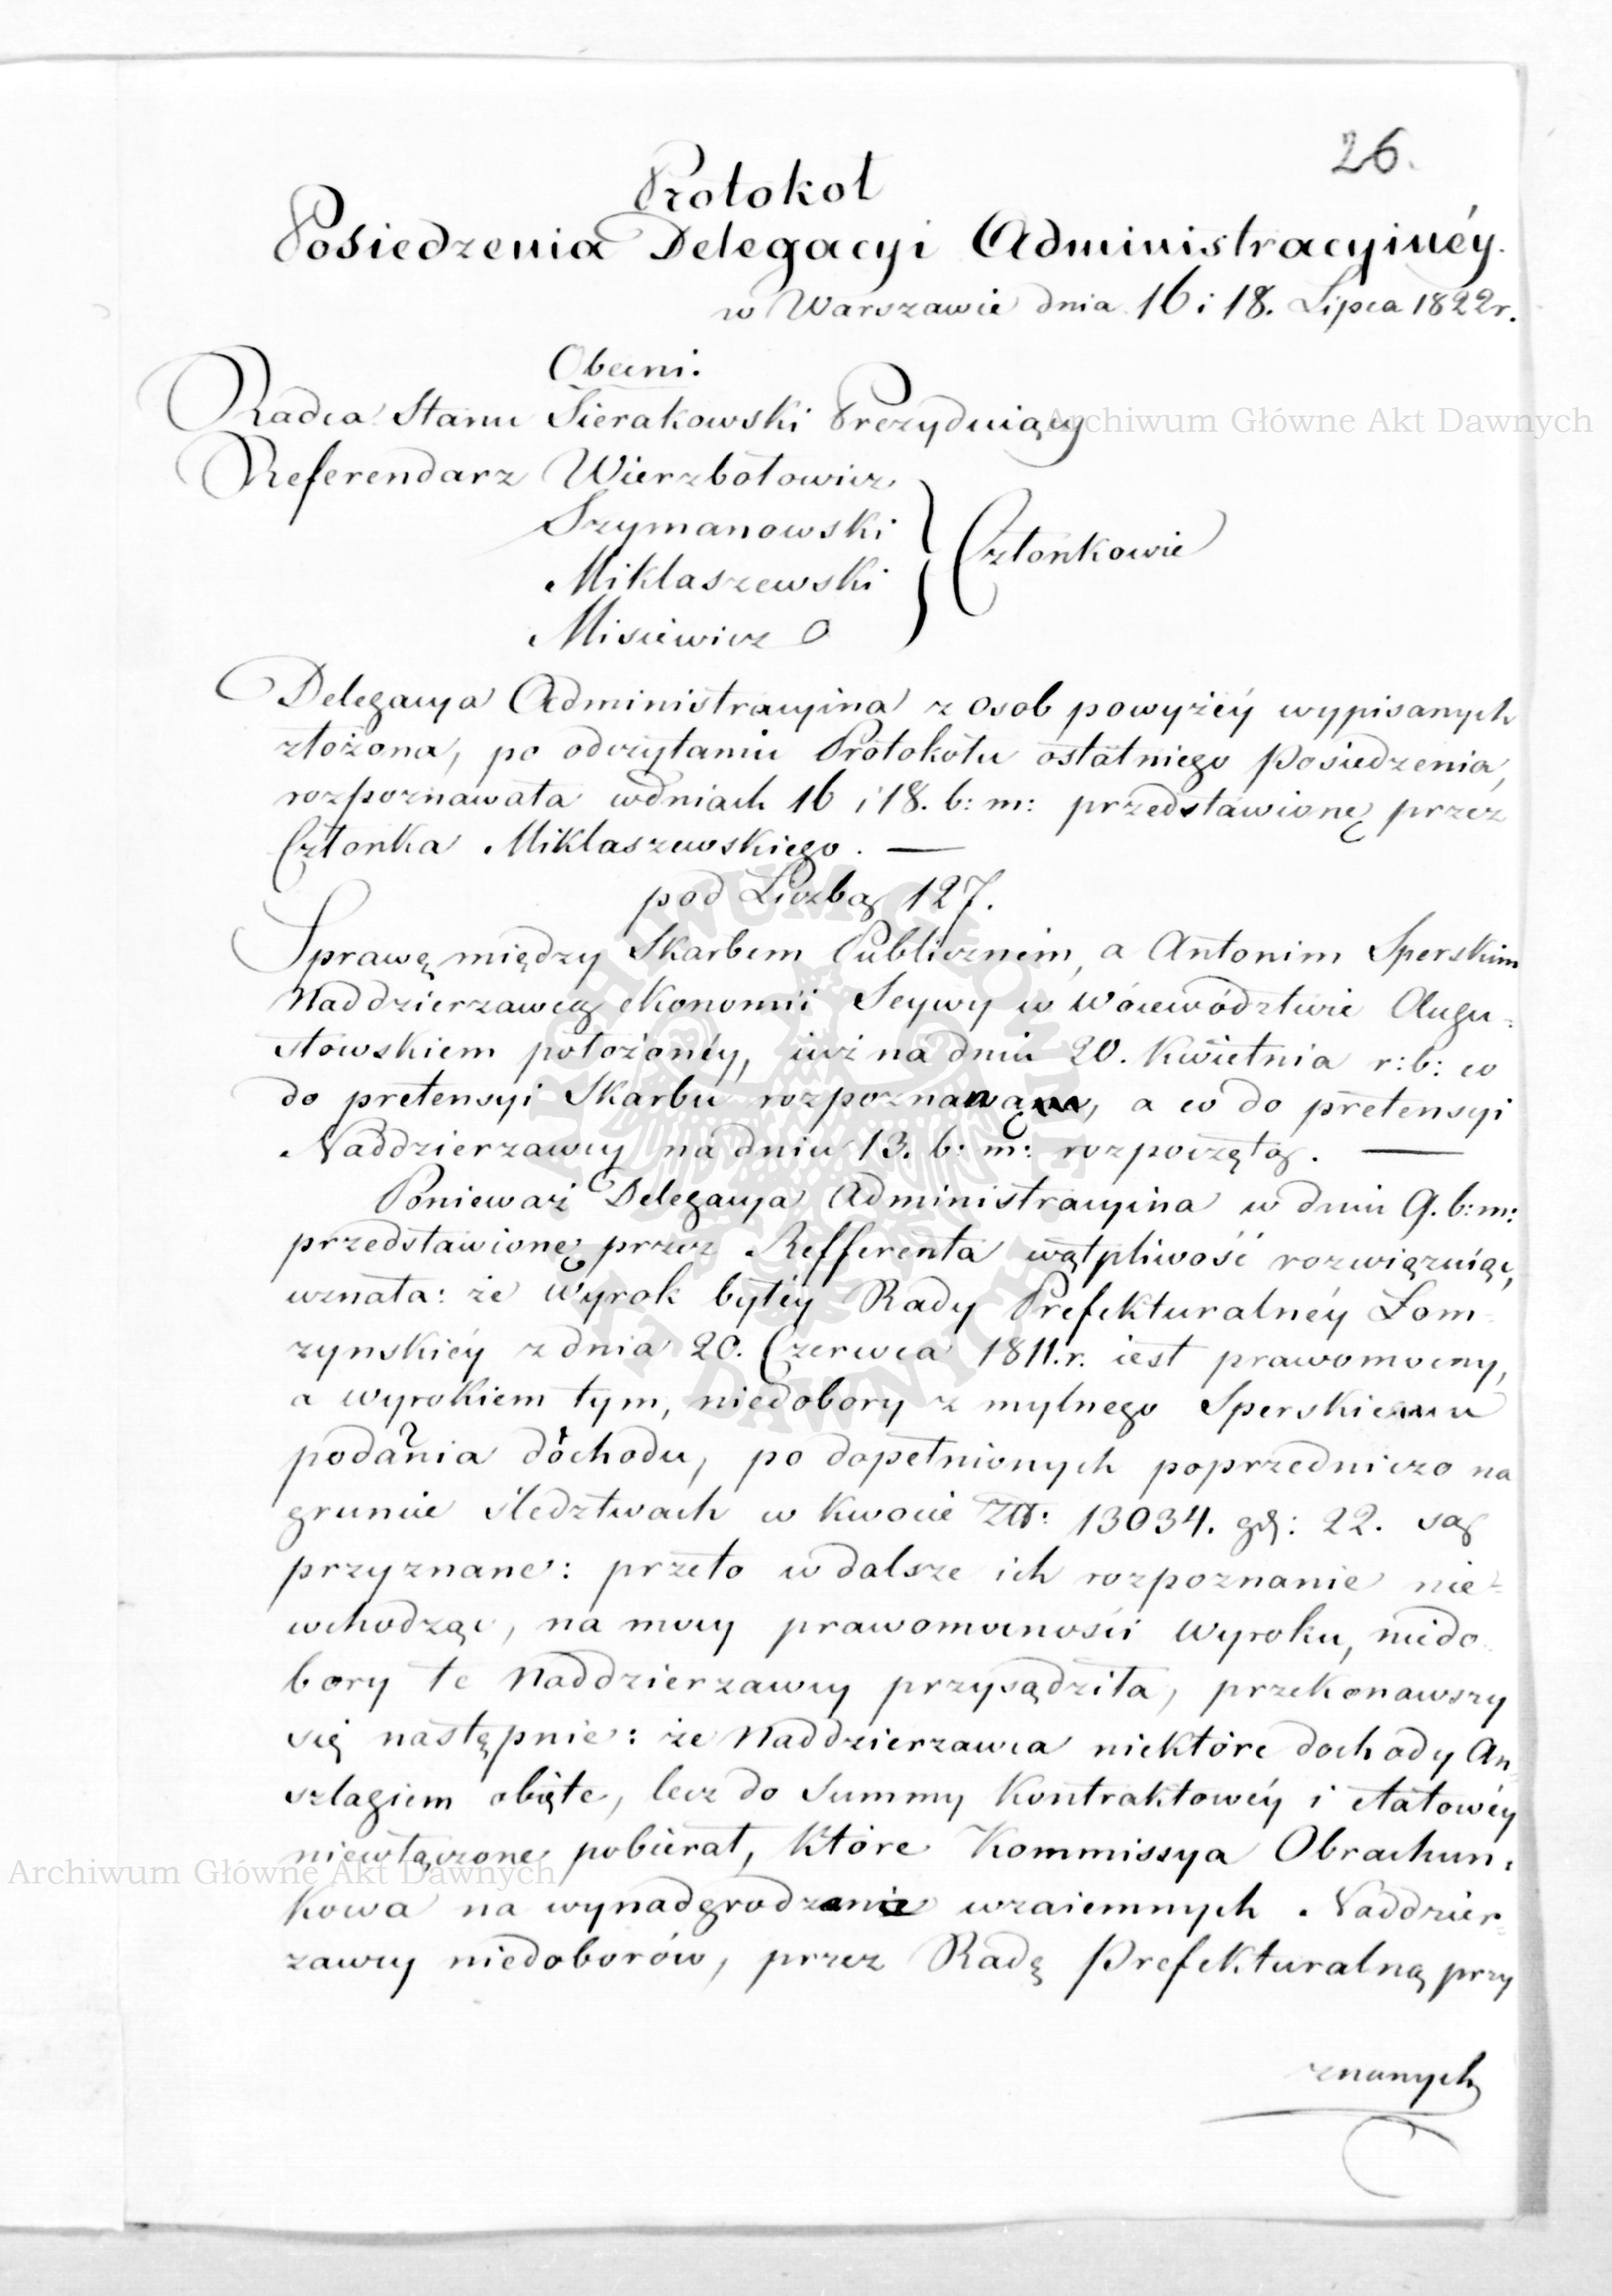 26.
Protokoł
Posiedzenia Delegacyi Administracyinéy.
w Warszawie dnia 16 i 18. Lipca 1822 r.
Obecni.
Radca Stanu Sierakowski Prezyduiący
Archiwum Główne Akt Dawnych
Referendarz Wierzbołowicz
Szymanowski
Członkowie
Miklaszewski
Misiewicz
Delegacya Administracyina z osob powyżéy wypisanych
złożona, po odczytaniu Protokołu ostatniego Posiedzenia,
rozpoznawała wdniach 16 i 18. b: m: przedstawioną przez
Członka Miklaszewskiego. —
pod Liczbą 127.
Sprawę między Skarbem Publiczném, a Antonim Sperskim
Naddzierzawcą ekonomii Seywy w Wóiewództwie Augu-
stowskiem położonéy, iuż na dniu 20. Kwietnia r: b: co
do pretensyi Skarbu rozpoznaną, a co do pretensyi
Naddzierzawcy na dniu 13. b: m: rozpoczętą. —
Ponieważ Delegacya Administracyina w dniu 9. b: m:
przedstawioną przez Refferenta wątpliwość rozwiązuiąc,
uznała: że Wyrok byłéy Rady Prefekturalnéy Łom-
zynskiéy z dnia 20. Czerwca 1811. r. iest prawomocny,
a wyrokiem tym, niedobory z mylnego Sperskiemu
podania dochodu, po dopełnionych poprzedniczo na
gruncie śledztwach w kwocie Złł: 13034. gr: 22. są
przyznane: przeto w dalsze ich rozpoznanie nie-
wchodząc, na mocy prawomocności Wyroku, niedo-
bory te Naddzierzawcy przysądziła, przekonawszy
się następnie: że Naddzierzawca niektóre dochody An-
szlagiem obięte, lecz do Summy Kontraktowéy i etatowéy
niewłączone pobierał, które Kommissya Obrachun-
Archiwum Główne Akt Dawnych
kowa na wynadgrodzenie wzaiemnych Naddzier-
zawcy niedoborów, przez Radę Prefekturalną przy
znanych